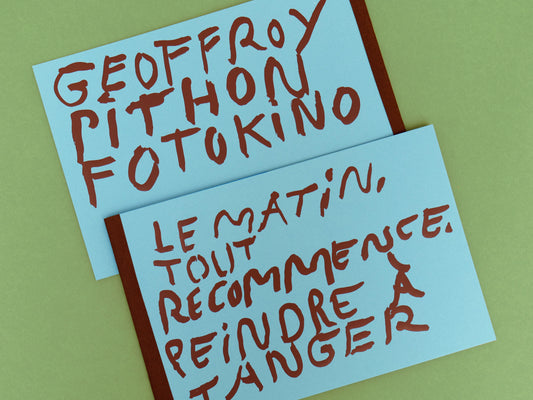 GEOFFROY
PITHON
FOTOKINO
LE MATIN,
TOUT
RECOMMENCE.
PEINDRE À
TANGER